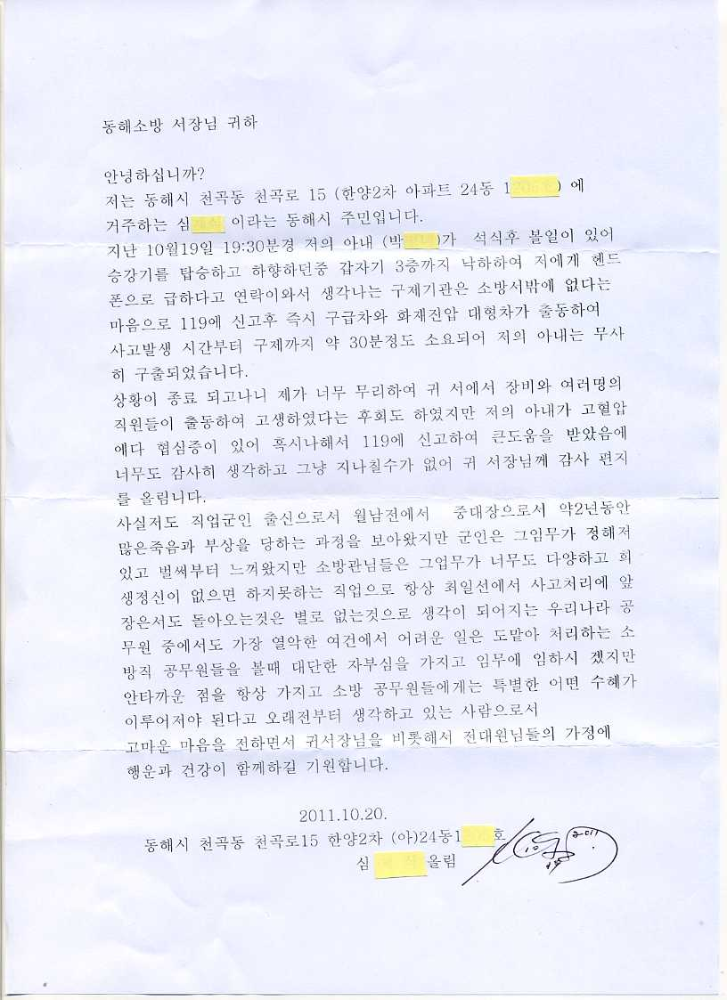 동해소방 서장님 귀하
안녕하십니까?
저는 동해시 천곡동 천곡로 15 (한양2차 아파트 24동 1) 에
거주하는 심 이라는 동해시 주민입니다.
지난 10월19일 19:30분경 저의 아내 (박)가 석식후 볼일이 있어
승강기를 탑승하고 하향하던중 갑자기 3층까지 낙하하여 저에게 헨드
폰으로 급하다고 연락이와서 생각나는 구제기관은 소방서밖에 없다는
마음으로 119에 신고후 즉시 구급차와 화재진압 대형차가 출동하여
사고발생 시간부터 구제까지 약 30분정도 소요되어 저의 아내는 무사
히 구출되었습니다.
상황이 종료 되고나니 제가 너무 무리하여 귀 서에서 장비와 여러명의
직원들이 출동하여 고생하였다는 후회도 하였지만 저의 아내가 고혈압
에다 협심증이 있어 혹시나해서 119에 신고하여 큰도움을 받았음에
너무도 감사히 생각하고 그냥 지나칠수가 없어 귀 서장님께 감사 편지
를 올림니다.
사실저도 직업군인 출신으로서 월남전에서 중대장으로서 약2년동안
많은죽음과 부상을 당하는 과정을 보아왔지만 군인은 그임무가 정해저
있고 벌써부터 느껴왔지만 소방관님들은 그업무가 너무도 다양하고 희
생정신이 없으면 하지못하는 직업으로 항상 최일선에서 사고처리에 앞
장은서도 돌아오는것은 별로 없는것으로 생각이 되어지는 우리나라 공
무원 중에서도 가장 열악한 여건에서 어려운 일은 도맡아 처리하는 소
방직 공무원들을 볼때 대단한 자부심을 가지고 임무에 임하시 겠지만
안타까운 점을 항상 가지고 소방 공무원들에게는 특별한 어떤 수혜가
이루어저야 된다고 오래전부터 생각하고 있는 사람으로서
고마운 마음을 전하면서 귀서장님을 비롯해서 전대원님들의 가정에
행운과 건강이 함께하길 기원합니다.
2011.10.20.
동해시 천곡동 천곡로15 한양2차 (아)24동1 호
심 올림